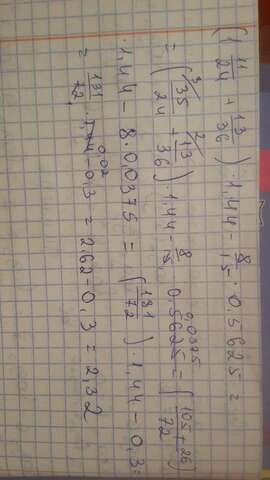 (1 11/24 + 13/36) · 1,44 - 8/15 · 0,5625 =
= (³⁄35/24 + ²⁄13/36) · 1,44 - 8/15, 0,5625 0,0375 = (105+26/72)
· 1,44 - 8 · 0,0375 = (131/72) · 1,44 - 0,3 =
= 131/72, · 1,44 0,02 - 0,3 = 2,62 - 0,3 = 2,32